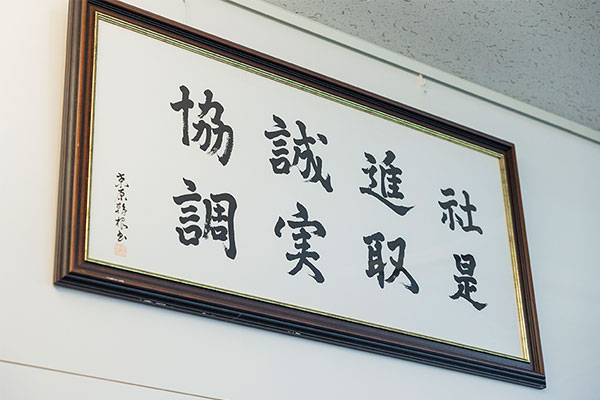 社是
進取
誠実
協調